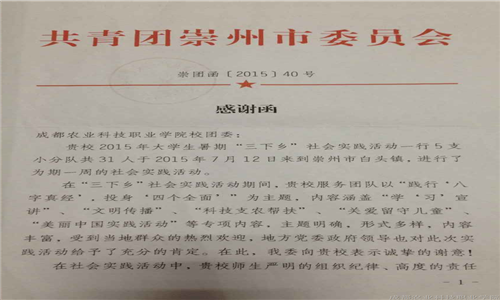 共青团崇州市委员会
崇团函〔2015〕40号
感谢函
成都农业科技职业学院校团委：
贵校2015年大学生暑期“三下乡”社会实践活动一行5支
小分队共31人于2015年7月12日来到崇州市白头镇，进行了
为期一周的社会实践活动。
在“三下乡”社会实践活动期间，贵校服务团队以“践行‘八
字真经’，投身‘四个全面’”为主题，内容涵盖“学‘习’宣
讲”、“文明传播”、“科技支农帮扶”、“关爱留守儿童”、
“美丽中国实践活动”等专项内容，主题明确，形式多样，内容
丰富，受到当地群众的热烈欢迎，地方党委政府领导也对此次实
践活动给予了充分的肯定。在此，我委向贵校表示诚挚的谢意！
在社会实践活动中，贵校师生严明的组织纪律、高度的责任
- 1 -